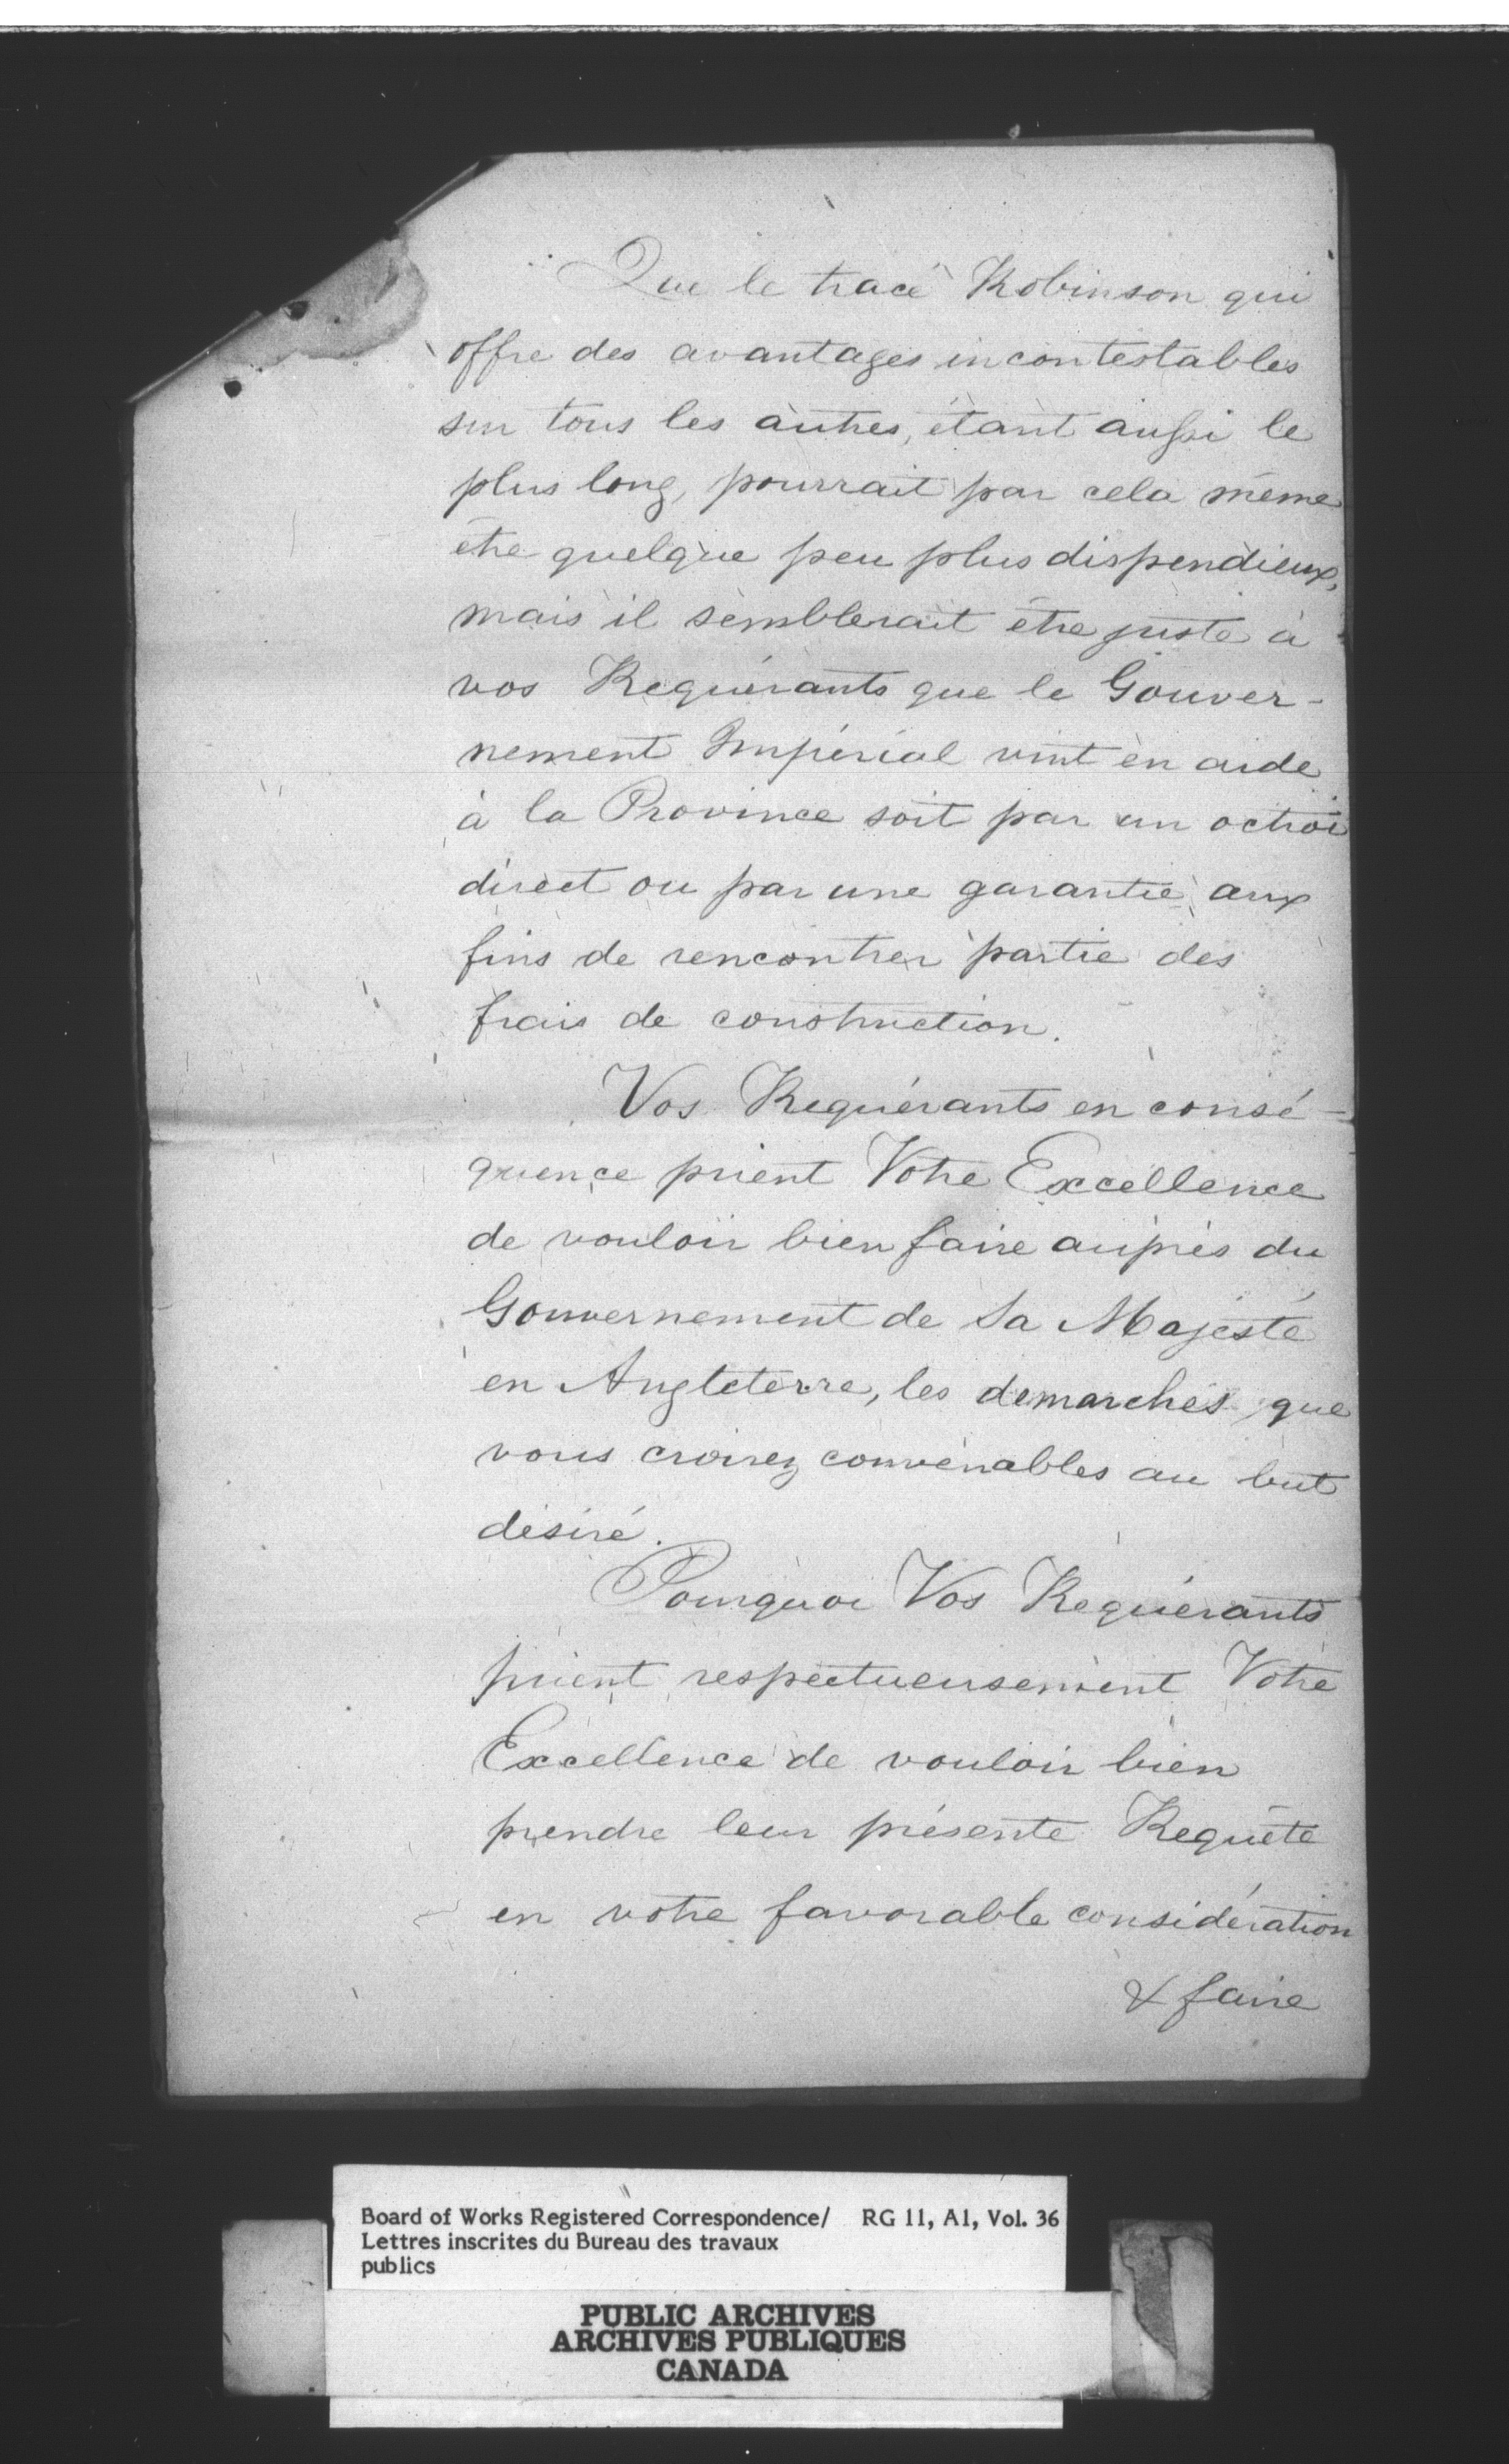 Que le tracé Robinson qui
offre des avantages incontestables
sur tous les autres, étant aussi le
plus long, pourrait par cela même
être quelque peu plus dispendieux,
mais il semblerait être juste à
vos Requérants que le Gouver-
nement Impérial vint en aide
à la Province soit par un octroi
direct ou par une garantie, aux
fins de rencontrer partie des
frais de construction.
Vos Requérants en consé-
quence prient Votre Excellence
de vouloir bien faire auprès du
Gouvernement de Sa Majesté
en Angleterre, les demarches que
vous croirez convenables au but
désiré.
Pourquoi Vos Requérants
prient respectueusement Votre
Excellence de vouloir bien
prendre leur présente Requête
en votre favorable considération
& faire
Board of Works Registered Correspondence/ RG 11, A1, Vol. 36
Lettres inscrites du Bureau des travaux
publics
PUBLIC ARCHIVES
ARCHIVES PUBLIQUES
CANADA